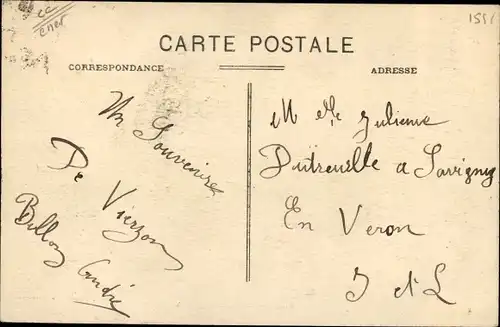 CARTE POSTALE
CORRESPONDANCE
ADRESSE
Un Souvenire
De Vierzon
Billon André
M elle Julienne
Dutreuille a Savigny
En Veron
I et L